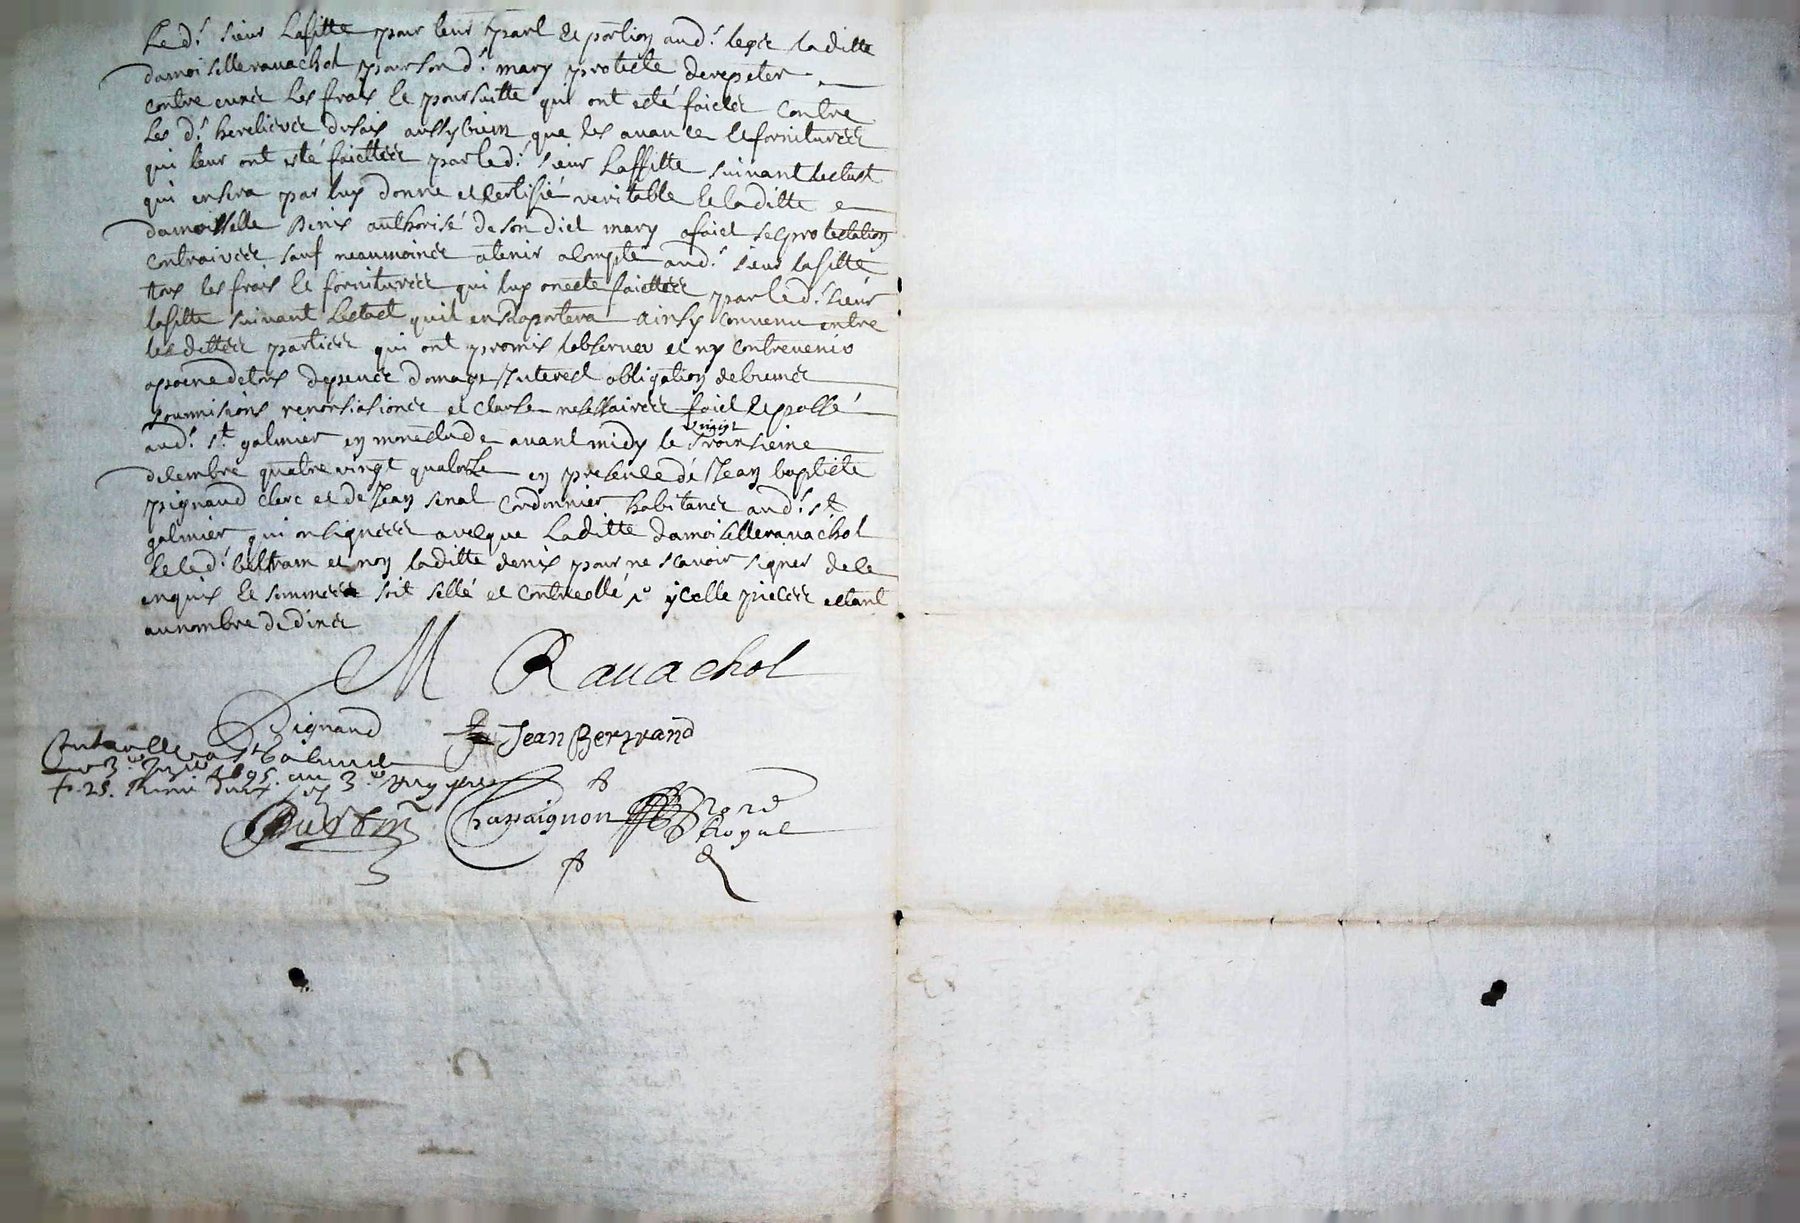 Led.t sieur Lafitte pour leur part et portion aud.t leger laditte
damoiselle ravachol pour son d.t mary proteste de repeter
contre eunee les frais et poursuitte qui ont esté faictes contre
les d.t heretieres disais aussy bien que les avance et fornitures
qui leur ont esté faicttes par led.t sieur Laffitte suivant lestast
qui en sera par luy donne et certifié veritable et laditte
damoiselle Denis authorisé de son dict mary a faict ses protestation
contraires sauf neaumoines a tenir a compte aud.t sieur lafitte
tous les frais et fornitures qui luy on este faicttes par led.t sieur
lafitte suivant lestact quil en raportera ainsy convenu entre
les dittes parties qui ont promis lobserver et ny contrevenir
a poeine de tous depence domage Interest obligation de biences
soumissions renonsiasiones et clause nessessaires faict et passé
aud.t S.t galmier en monestude avant midy le vingt troinsieme
desembre quatre vingt quatorse en presence de Jean baptiste
pignaud clerc et de Jean senal cordonnier habitance aud.t S.t
galmier qui on signees avecque Laditte damoiselle ravachol
et led.t beltram et non laditte denis pour ne scavoir signer de ce
enquis et sommees soit sellé et contreollé ycelle pieces estant
au nombre de dince
M Ravachol
Pignaud
Jean Bertrand
Controllé a St Galmier
f.o 25.
Chassaignon No.re
Royal